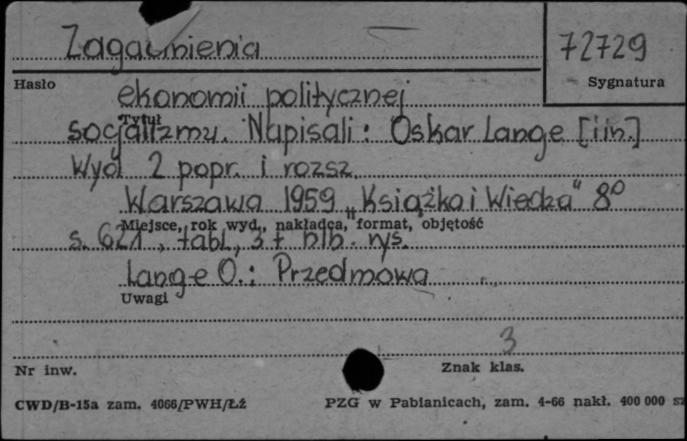 Zagadnienia 72729
Hasło Sygnatura
ekonomii politycznej
Tytuł
socjalizmu. Napisali: Oskar Lange [i in.]
Wyd 2 popr. i rozsz.
Warszawa 1959 „Książka i Wiedza" 8°
Miejsce, rok wyd., nakładca, format, objętość
s. 621, tabl., nlb. rys.
Lange O.: Przedmowa
Uwagi
3
Nr inw. Znak klas.
CWD/B-15a zam. 4066/PWH/Łż PZG w Pabianicach, zam. 4-66 nakł. 400 000 sz